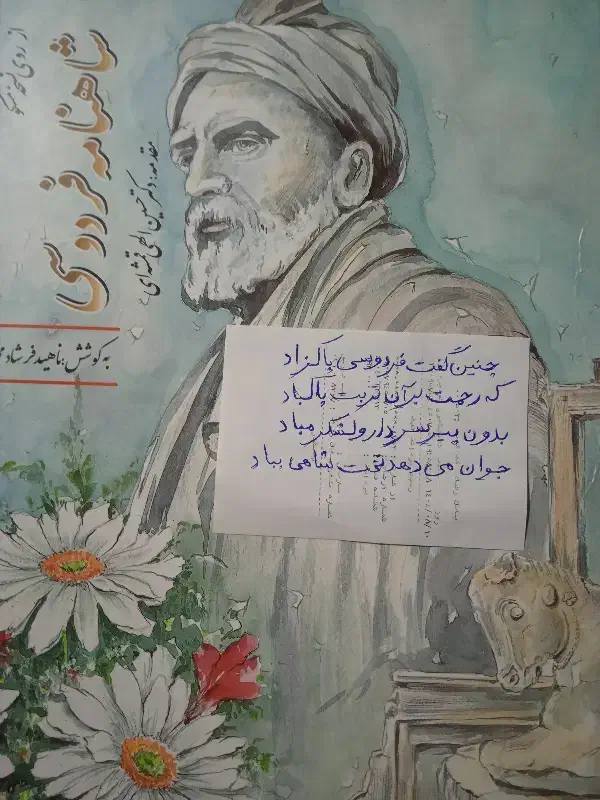 از روی نسخه مسکو
شاهنامه فردوسی
مقدمه: دکتر حسین الهی قمشه‌ای
به کوشش: ناهید فرشادمهر
چنین گفت فردوسی پاکزاد
که رحمت بر آن تربت پاک باد
بدون پیر سردار و لشکر مباد
جوان می دهد تخت شاهی بباد